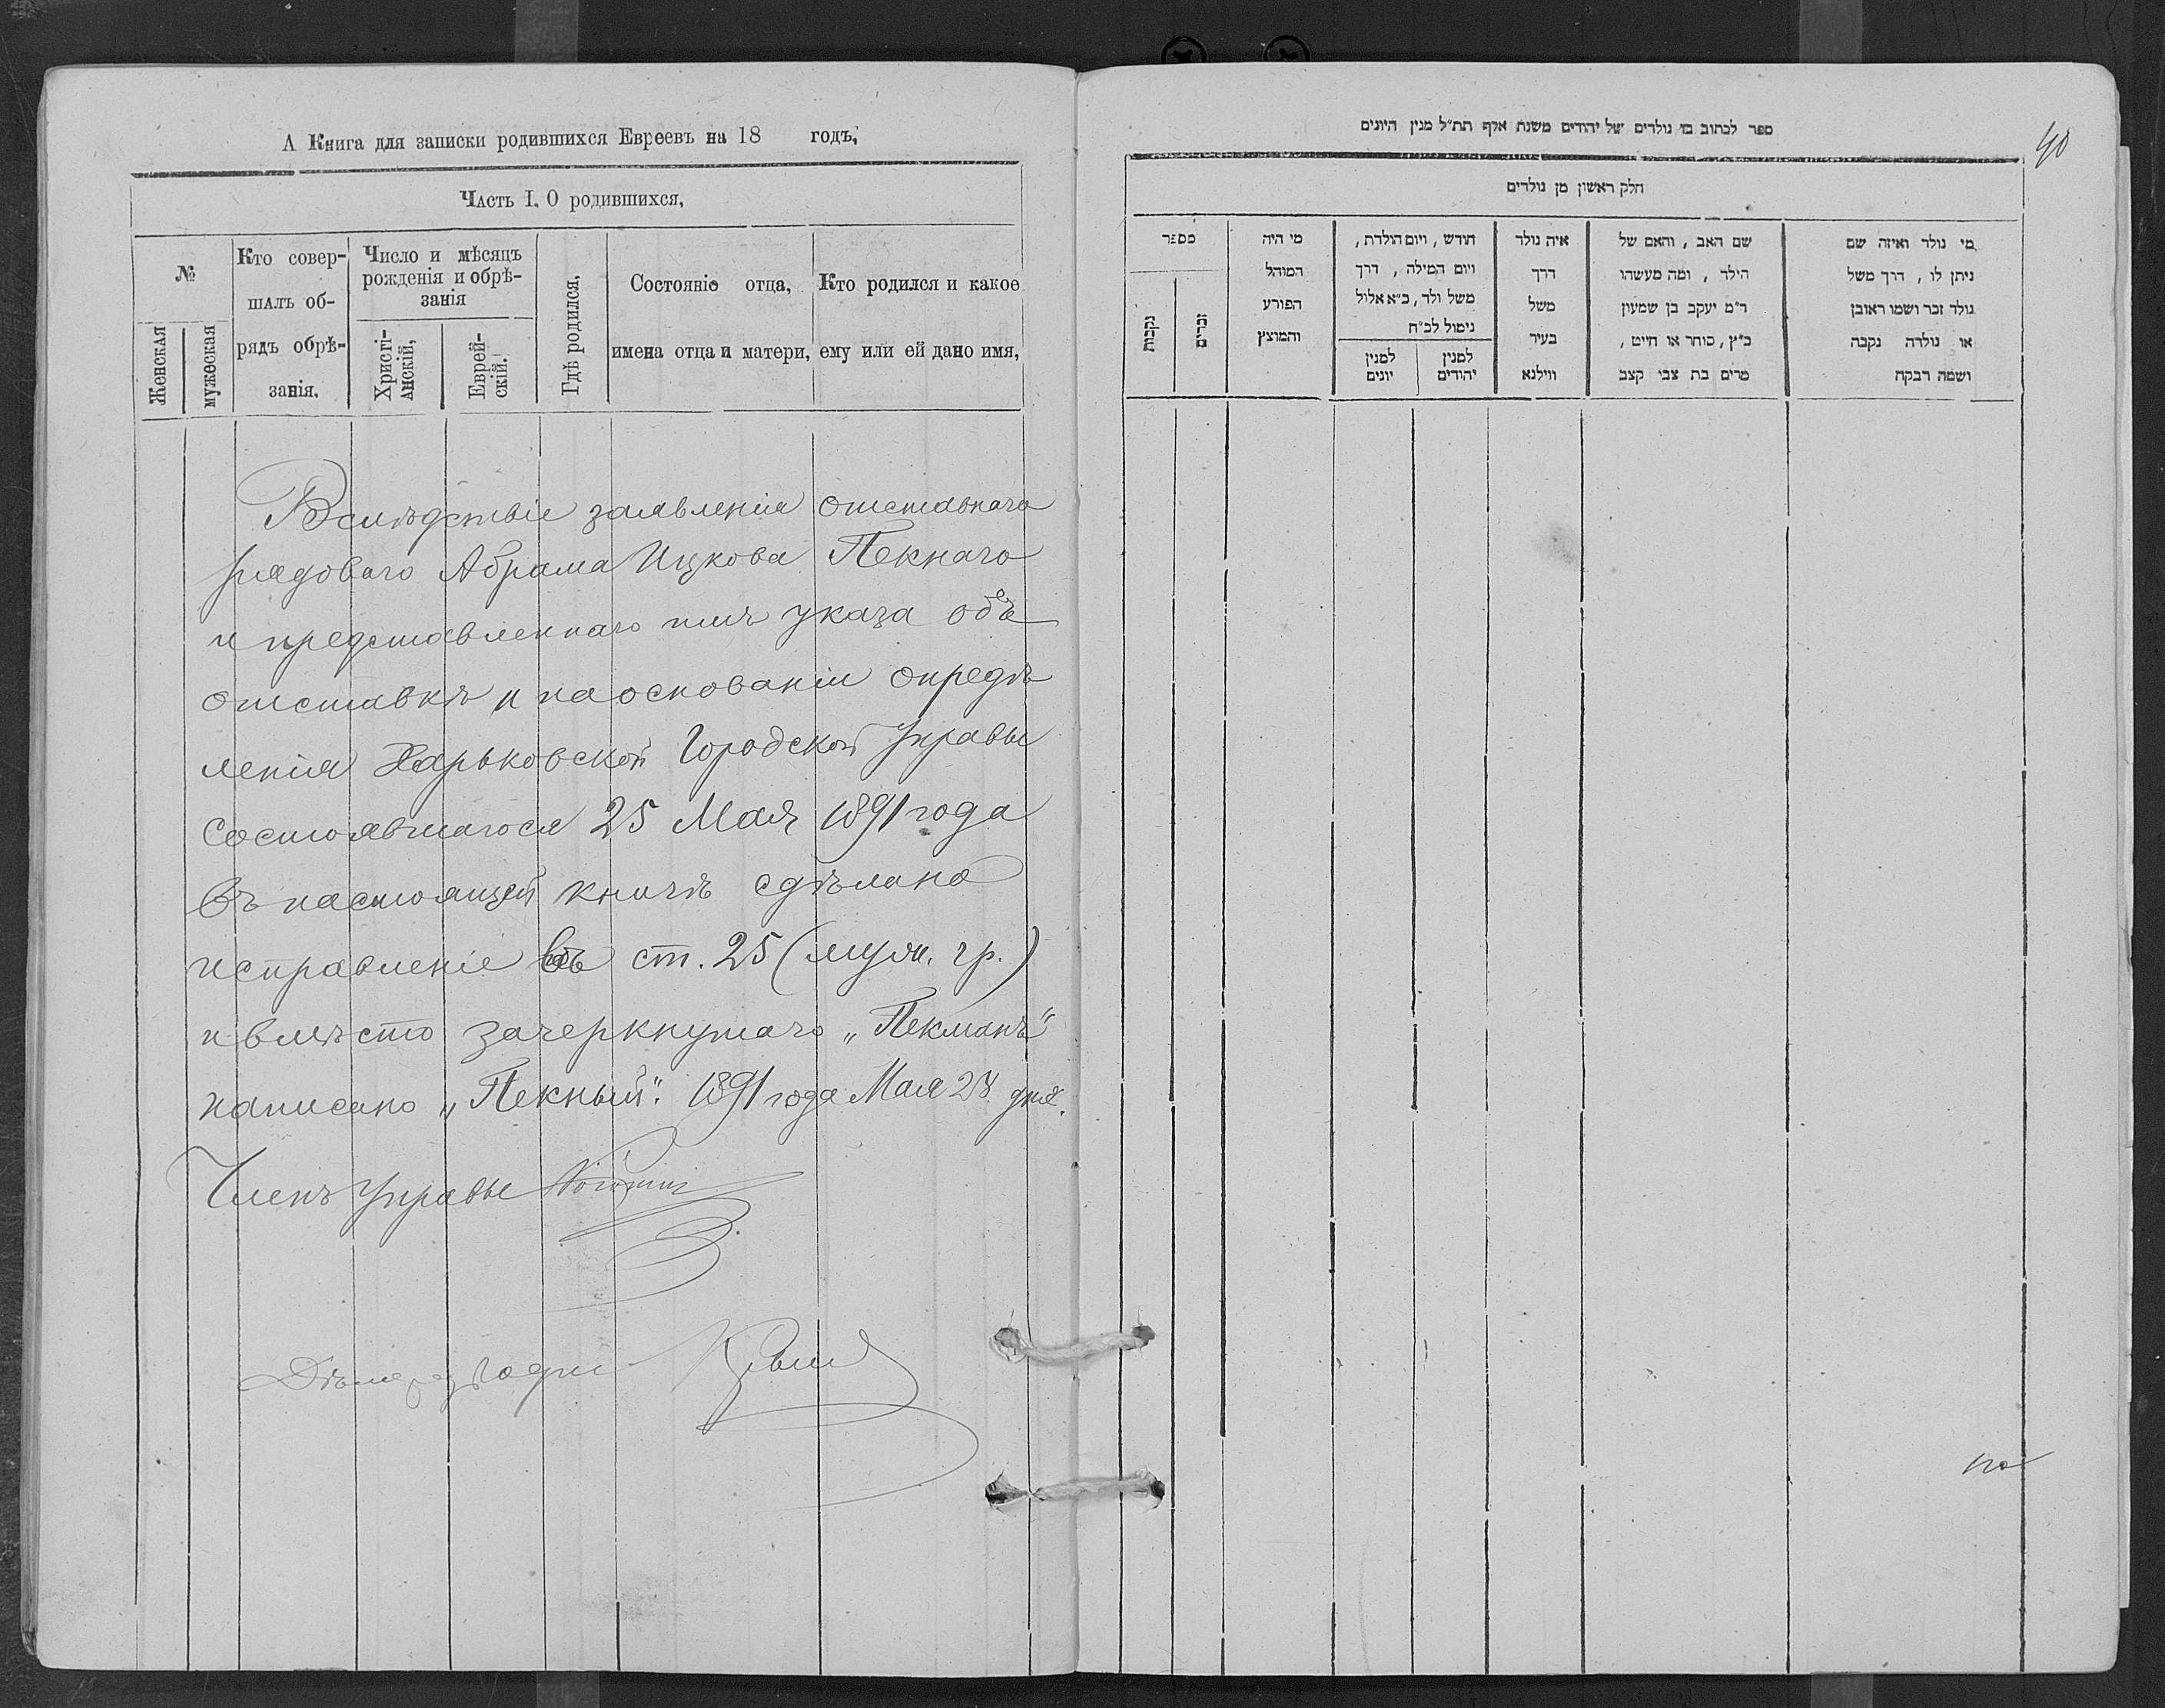 А Книга для записки родившихся Евреевъ на 18 годъ,
Часть I. О родившихся,
№
Женская
мужеская
Кто совер-
шалъ об-
рядъ обрѣ-
занія.
Число и мѣсяцъ
рожденія и обрѣ-
занія
Христі-
анскій,
Еврей-
скій.
Гдѣ родился,
Состояніе отца,
имена отца и матери,
Кто родился и какое
ему или ей дано имя,
Вслѣдствіе заявленія отставнаго
рядоваго Абрама Ицкова Пекнаго
и представленнаго имъ указа объ
отставкѣ и на основаніи опредѣ
ленія Харьковской Городской Управы
состоявшагося 25 Мая 1891 года
въ настоящей книгѣ сдѣлано
исправленіе въ ст. 25 (муж. гр.)
и вмѣсто зачеркнутаго „Пекманъ"
написано „Пекный". 1891 года Мая 28 дня.
Членъ Управы
ספר לכתוב בו נולדים של יהודים משנת אלף תת״ל מנין היונים
40
חלק ראשון מן נולדים
מי נולד ואיזה שם
ניתן לו, דרך משל
נולד זכר ושמו ראובן
או נולדה נקבה
ושמה רבקה
שם האב, והאם של
הילד, ומה מעשהו
ר״מ יעקב בן שמעון
כ״ץ, סוחר או חייט,
מרים בת צבי קצב
איה נולד
דרך
משל
בעיר
ווילנא
חודש, ויום הולדת,
ויום המילה, דרך
משל ולד, כ״א אלול
נימול לכ״ח
למנין
יהודים
למנין
יונים
מי היה
המוהל
הפורע
והמוצץ
מספר
זכרים
נקבות